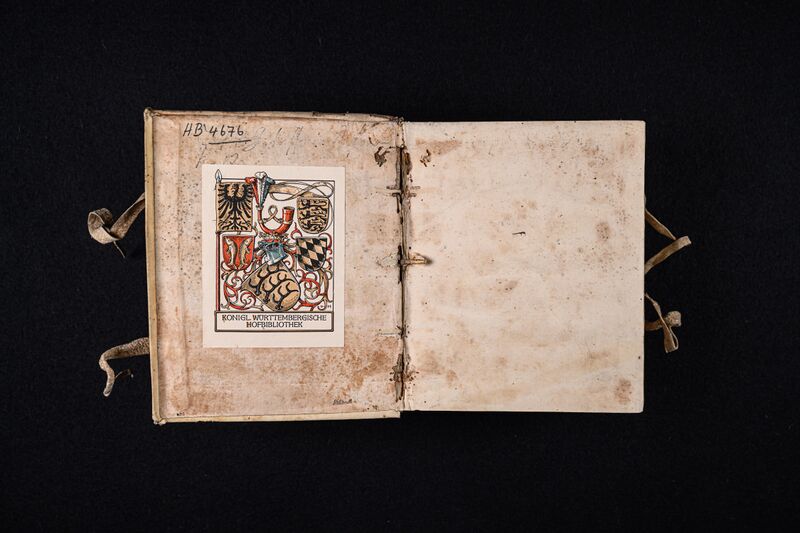 HB 4676
KÖNIGL. WÜRTTEMBERGISCHE
HOFBIBLIOTHEK